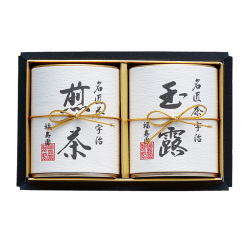 名匠茶宇治
煎茶
福寿園
名匠茶宇治
玉露
福寿園